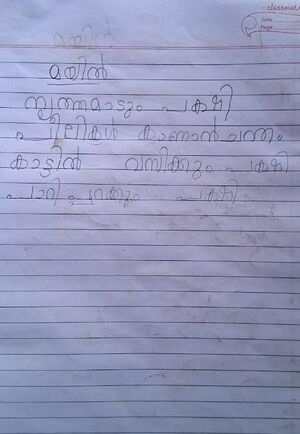 classmate
Date
Page
മയിൽ
മയിൽ
നൃത്തമാടും പക്ഷി
പീലികൾ കാണാൻ ചന്തം
കാട്ടിൽ വസിക്കും പക്ഷി
പാറി പറക്കും പക്ഷി